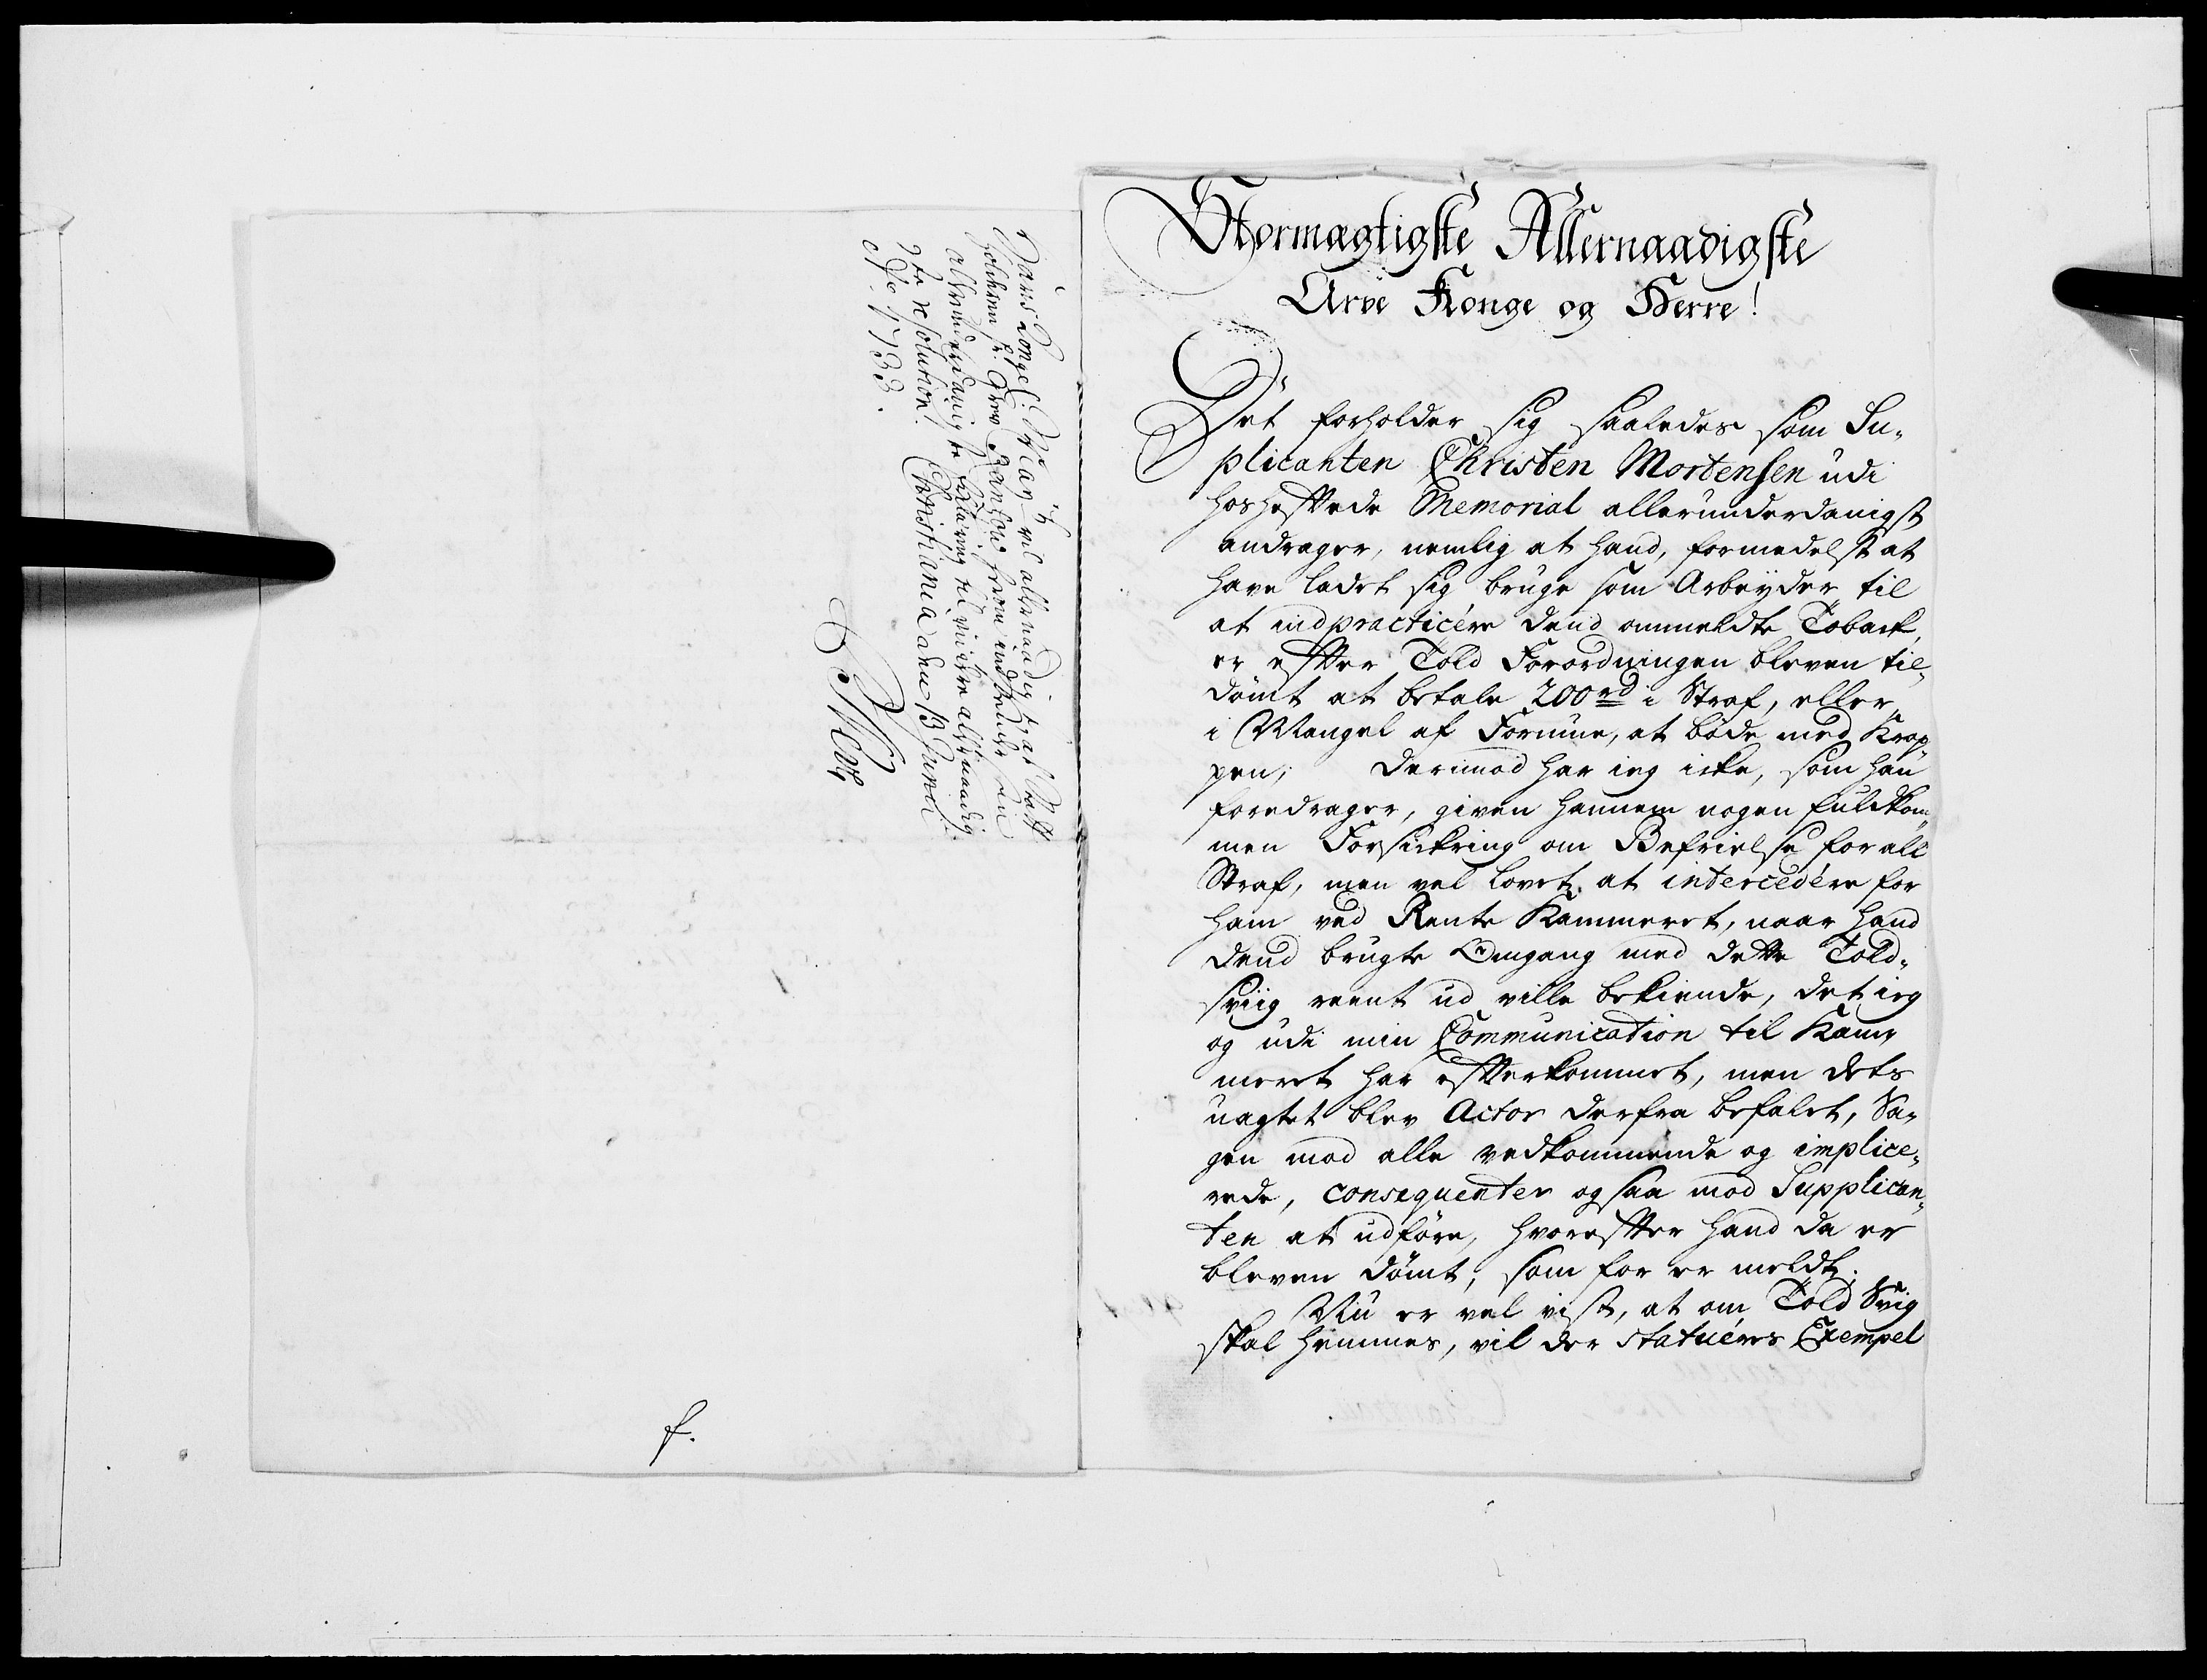 Hans Kongel: May: vil allernaadigst, at Statt
holderen Hr. Grev Rantzau herom indsende sin
allerunderdanigste Erklæring til videre allernaadig
ste Resolution. Christiania den 13 Junii
Ao 1733.
f.
Stormægtigste Allernaadigste
Arve Konge og Herre!
Det forholder sig saaledes som Su-
plicanten Christen Mortensen udi
hoshefftede Memorial allerunderdanigst
andrager, nemlig at hand, formedelst at
have ladet sig bruge som Arbeyder til
at indpracticére dend ommeldte Toback,
er effter Told Forordningen bleven til-
dömt at betale 200 rd i Straf, eller
i Mangel af Formue, at böde med Krop-
pen; derimod har ieg icke, som han
foredrager, given hannem nogen fuldkom-
men Forsickring om Befrielse for all
Straf, men vel lovet at intercedére for
ham ved Rente Kammeret, naar hand
dend brugte Omgang med dette Told-
sviig reent ud ville bekiende, det ieg
og udi min Communication til Kam-
meret har effterkommet, men dets
uagtet blev Actor derfra befalet, Sa-
gen mod alle vedkommende og implice-
rede, consequenter og saa mod Supplican-
ten at udföre, hvoreffter hand da er
bleven dömt, som for er meldt.
Nu er vel vist, at om Told Svig
skal hemmes, vil der statuéres Exempel